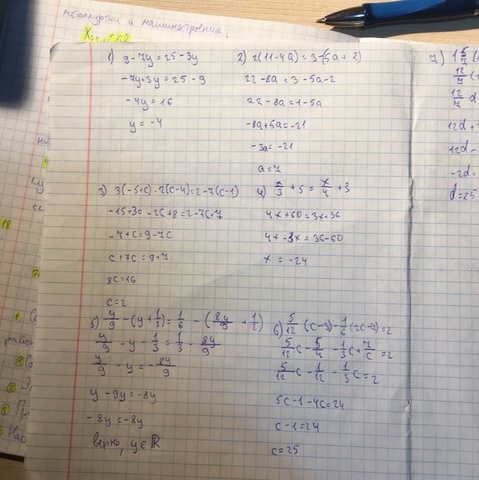 металлургии и машиностроения.
1) 9-7y=25-3y
-7y+3y=25-9
-4y=16
y=-4
2) 2(11-4a)=3-(5a+2)
22-8a=3-5a-2
22-8a=1-5a
-8a+5a=-21
-3a=-21
a=7
3) 3(-5+c)-2(c-4)=2-7(c-1)
-15+3c-2c+8=2-7c+7
-7+c=9-7c
c+7c=9+7
8c=16
c=2
4) x/3+5=x/4+3
4x+60=3x+36
4x-3x=36-60
x=-24
5) y/9-(y+1/3)=1/6-(8y/9+1/2)
y/9-y-1/3=1/3-8y/9
y/9-y=-8y/9
y-9y=-8y
-8y=-8y
верно, y∈R
6) 5/12(c-3)-1/6(2c-7)=2
5/12c-5/4-1/3c+7/6=2
5/12c-1/12-1/3c=2
5c-1-4c=24
c-1=24
c=25
7) 1 5/7(
12/7(
12/7d
12d+
12d-
-2d=
d=25